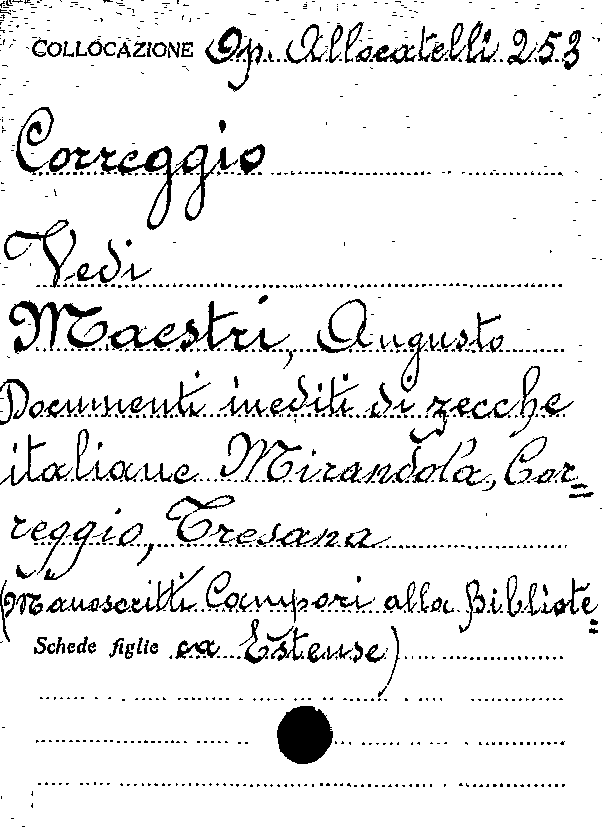 COLLOCAZIONE Op. Allocatelli 253
Correggio
Vedi
Maestri, Augusto
Documenti inediti di zecche
italiane Mirandola, Cor=
reggio, Tresana
(Manoscritti Campori alla Bibliote=
Schede figlie ca Estense)